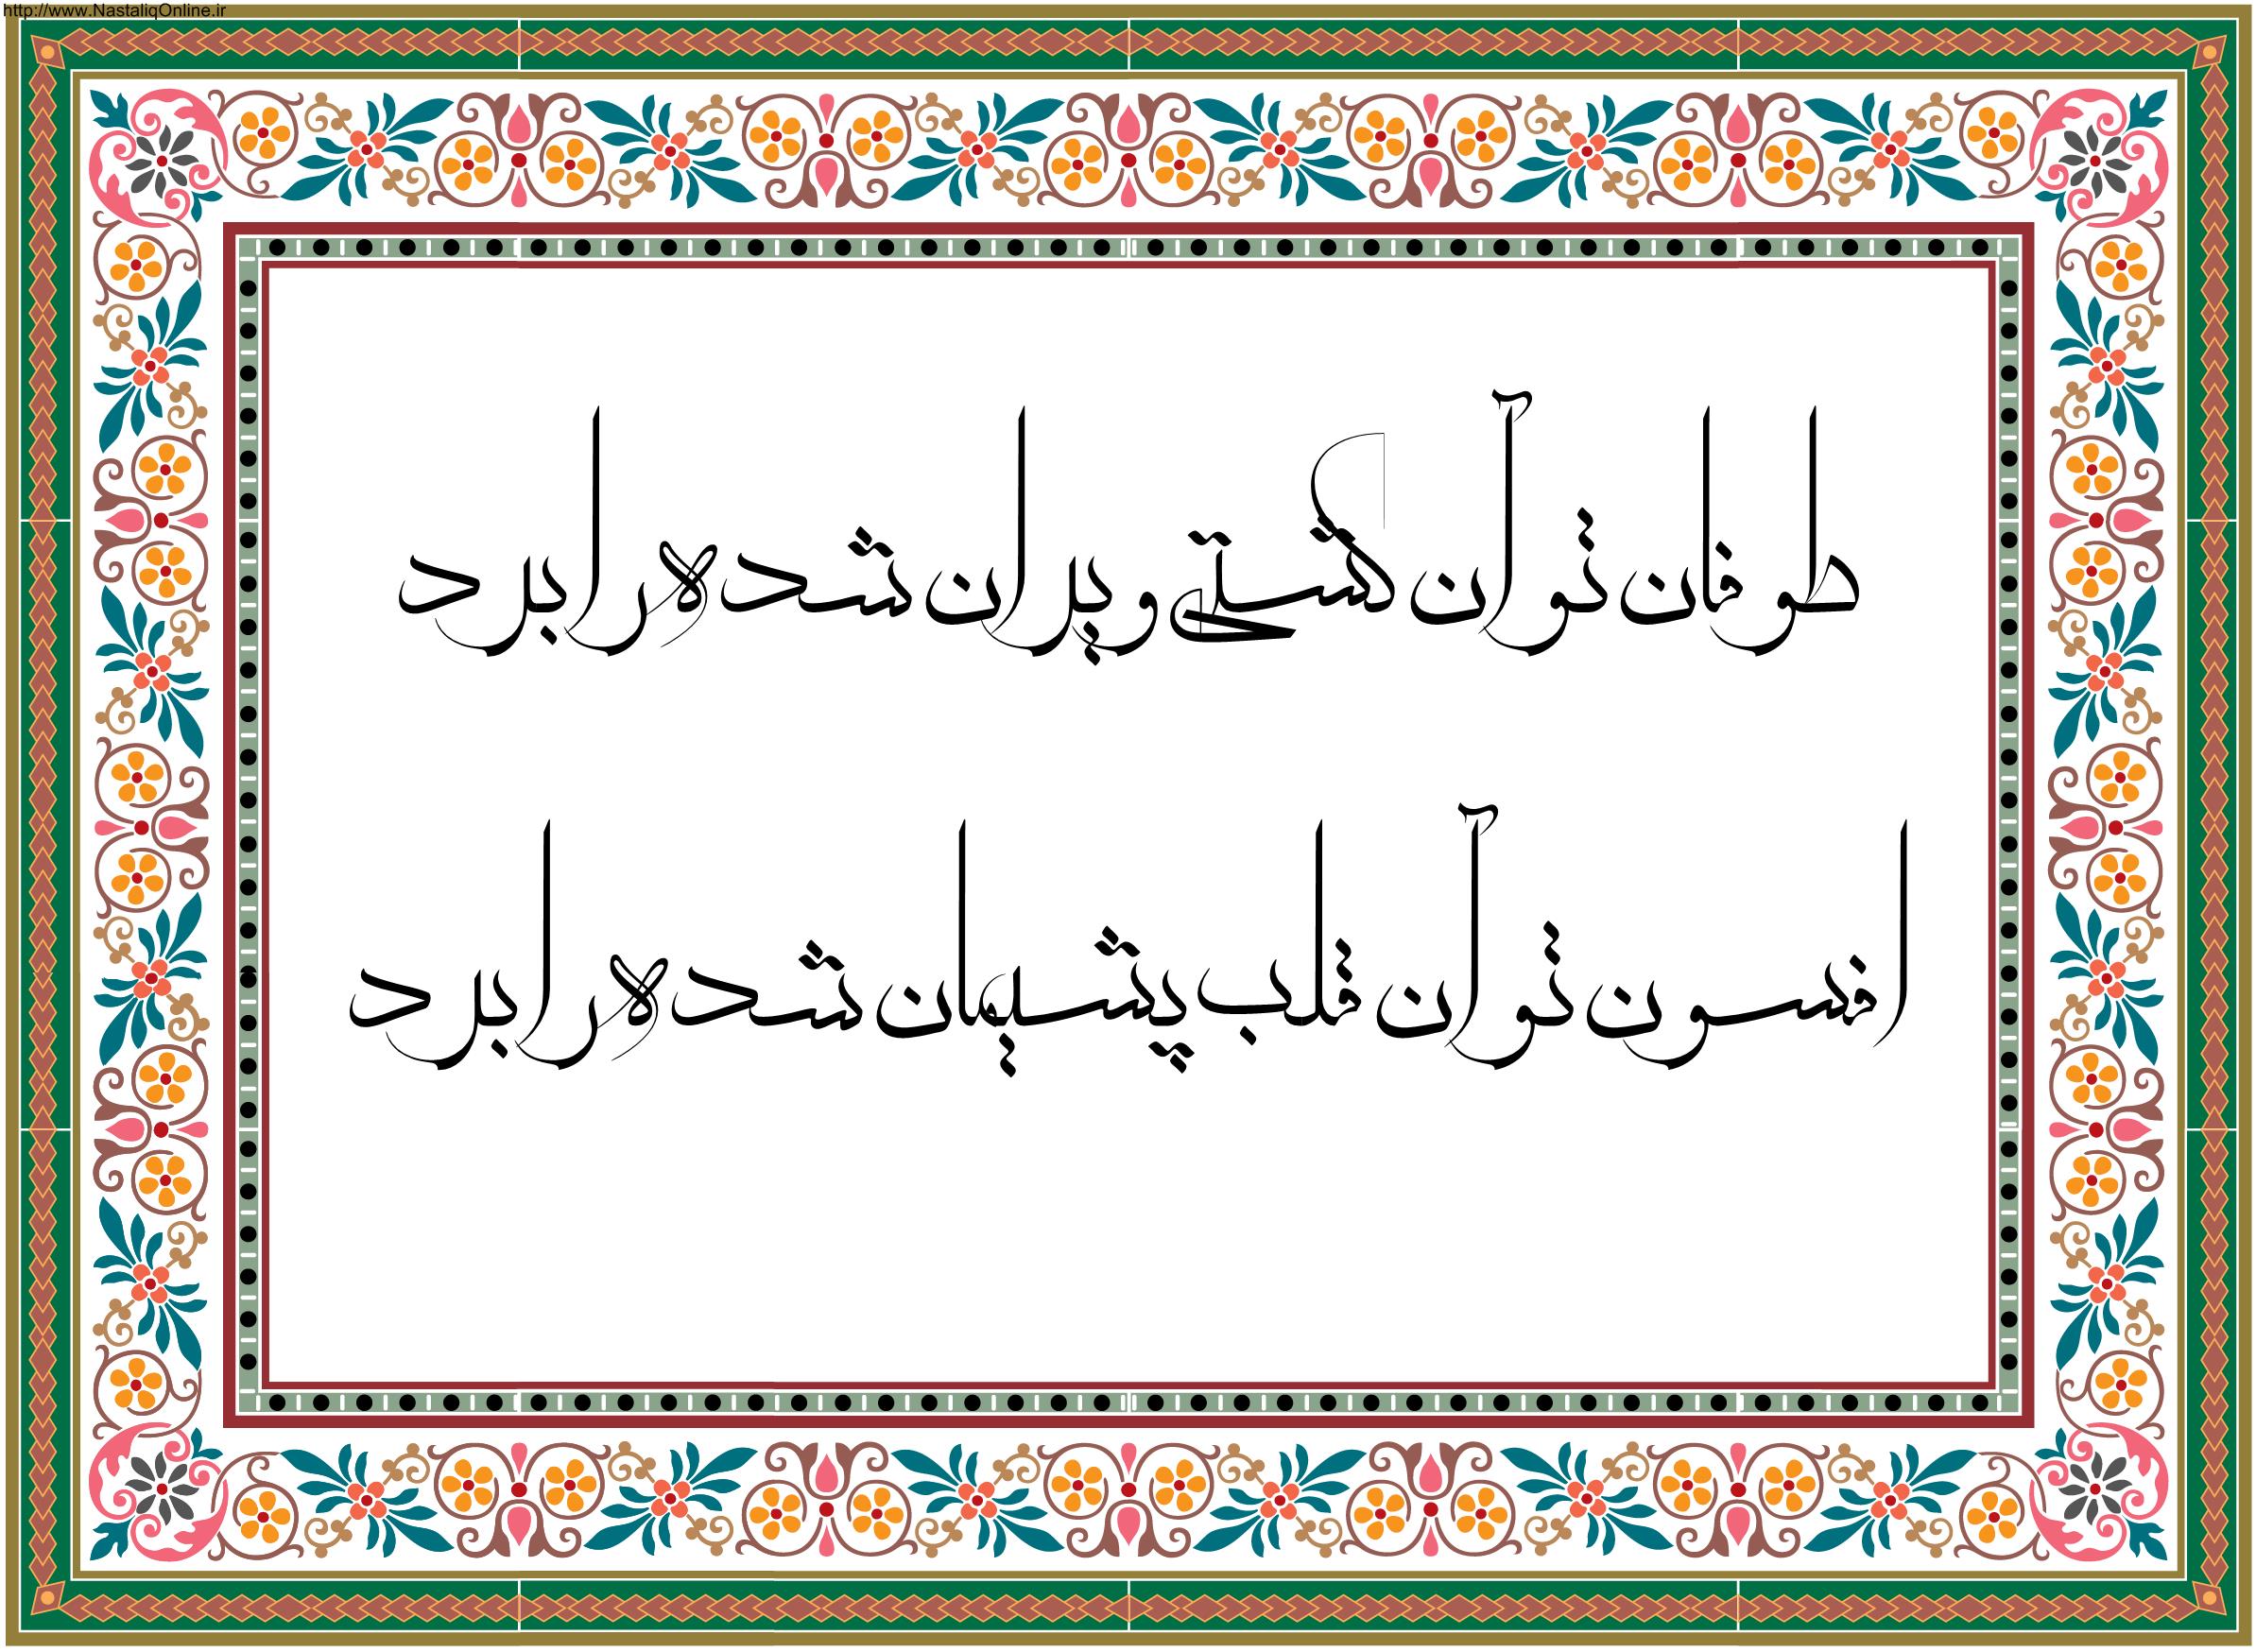 http://www.NastaliqOnline.ir
طوفان تو آن کشتی ویران شده را برد
افسون تو آن قلب پشیمان شده را برد